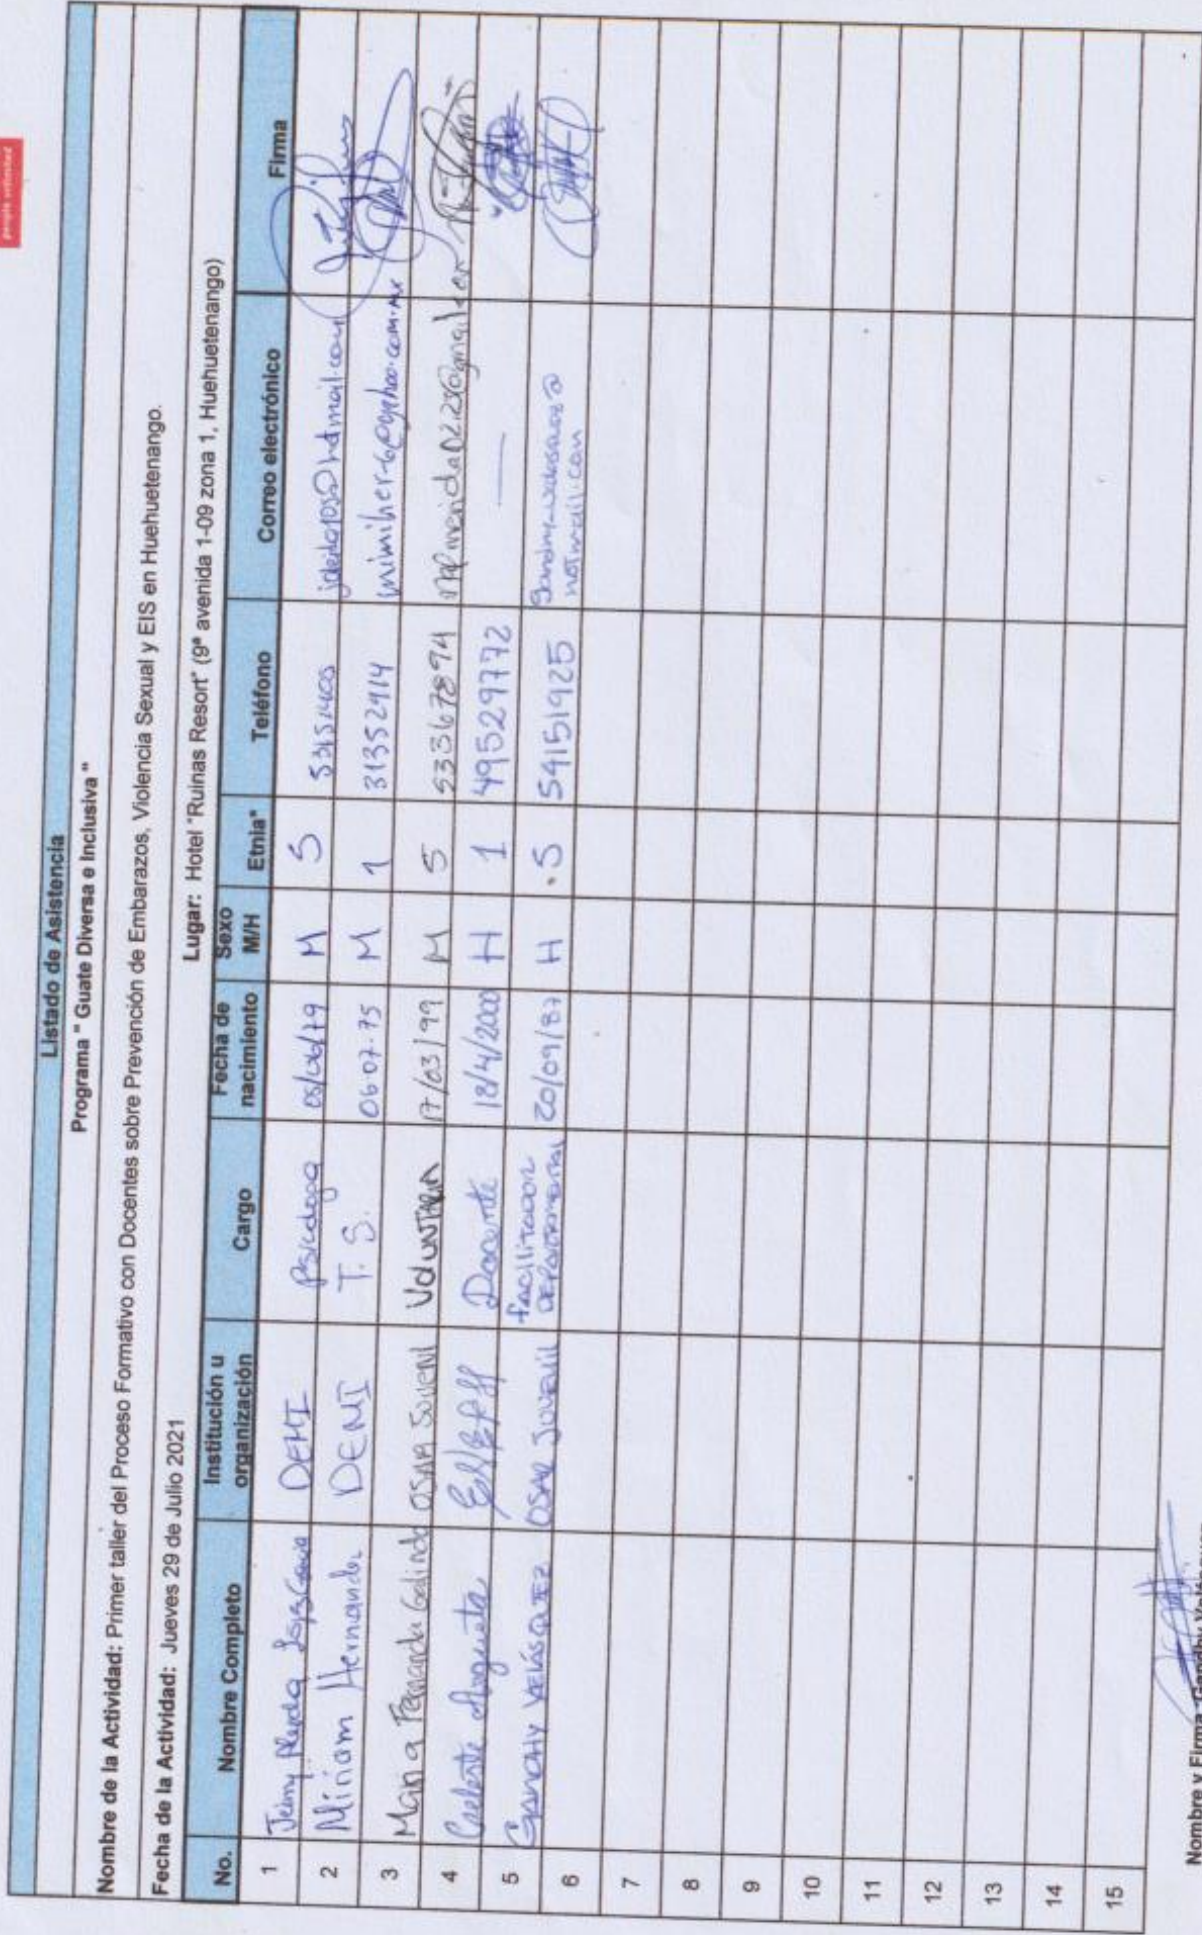 people unlimited
Listado de Asistencia
Programa " Guate Diversa e Inclusiva "
Nombre de la Actividad: Primer taller del Proceso Formativo con Docentes sobre Prevención de Embarazos, Violencia Sexual y EIS en Huehuetenango.
Fecha de la Actividad: Jueves 29 de Julio 2021 Lugar: Hotel "Ruinas Resort" (9ª avenida 1-09 zona 1, Huehuetenango)
No. Nombre Completo Institución u organización Cargo Fecha de nacimiento Sexo M/H Etnia* Teléfono Correo electrónico Firma
1 DEMI Psicologa 05/06/79 M 5
2 Miriam Hernandez DEMI T. S. 06.07.75 M 1 31352914
3 Maria Fernanda Galindo OSAR Juvenil Voluntaria 17/03/99 M 5 53367894
4 Celeste Argueta Docente 18/4/2000 H 1 49529772 —
5 Gandhy Velásquez OSAR Juvenil facilitador Departamental 20/09/87 H 5 54151925
6
7
8
9
10
11
12
13
14
15
Nombre y Firma: Gandhy Velásquez